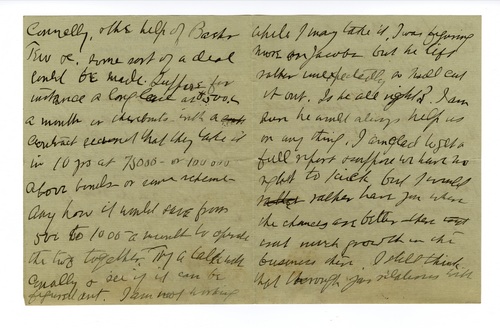 Connelly, & the help of Basks
some sort of a deal
could be made. Suppose for
instance a long lease at 500 -
a month or thereabouts with a
contract that they take it
in 10 yrs at 75000 - or 100 000
above bonds - or some scheme
Any how it would save from
500 to 1000 a month to operate
the two together. Try a talk with
Connelly & see if it can be
figured out. I am not working
while I may take it. I was figuring
more on Jacobs but he left
rather unexpectedly, so had cut
it out. Is he all right? I am
sure he would always help us
on any thing. I am glad to get a
full report & suppose we have no
right to kick but I would
rather have you where
the chances are better
not much growth in the
business there. I still think
that through your relations with